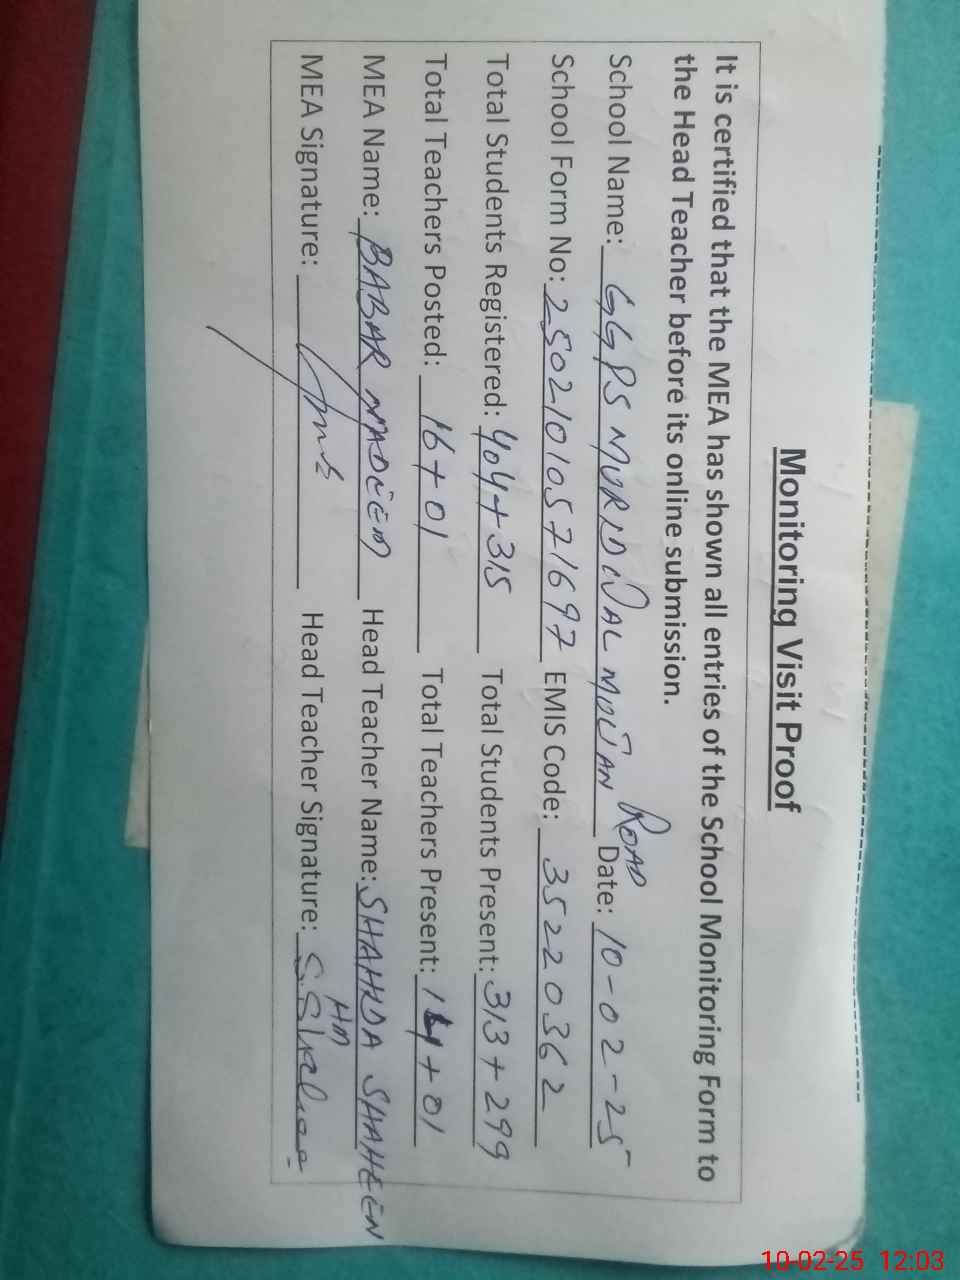 Monitoring Visit Proof
It is certified that the MEA has shown all entries of the School Monitoring Form to
the Head Teacher before its online submission.
School Name: GGPS MURIDWAL MULTAN ROAD Date: 10-02-25
School Form No: 25021010571697 EMIS Code: 35220362
Total Students Registered: 404+315 Total Students Present: 313+299
Total Teachers Posted: 16+01 Total Teachers Present: 14+01
MEA Name: BABAR NADEEM Head Teacher Name: SHAHIDA SHAHEEN
HM
MEA Signature: Head Teacher Signature:
10-02-25 12:03